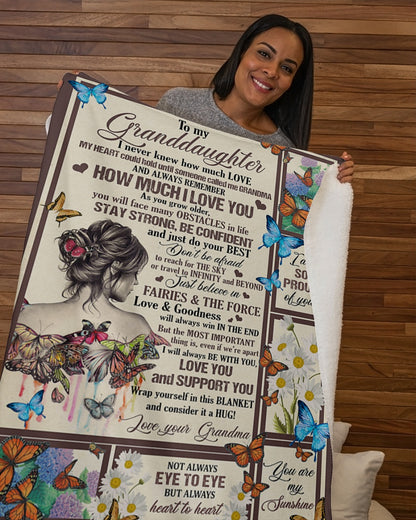 To my
Granddaughter
I never knew how much LOVE
MY HEART COULD HOLD UNTIL SOMEONE CALLED ME GRANDMA
AND ALWAYS REMEMBER
HOW MUCH I LOVE YOU
As you grow older,
you will face many OBSTACLES in life
STAY STRONG, BE CONFIDENT
and just do your BEST
Don't be afraid
to reach for THE SKY
or travel to INFINITY and BEYOND
Just believe in
FAIRIES & THE FORCE
Love & Goodness
will always win IN THE END
But the MOST IMPORTANT
thing is, even if we're apart
I will always BE WITH YOU,
LOVE YOU
and SUPPORT YOU
Wrap yourself in this BLANKET
and consider it a HUG!
Love, your Grandma
SO
PROUD
of you
NOT ALWAYS
EYE TO EYE
BUT ALWAYS
heart to heart
You are
my
Sunshine